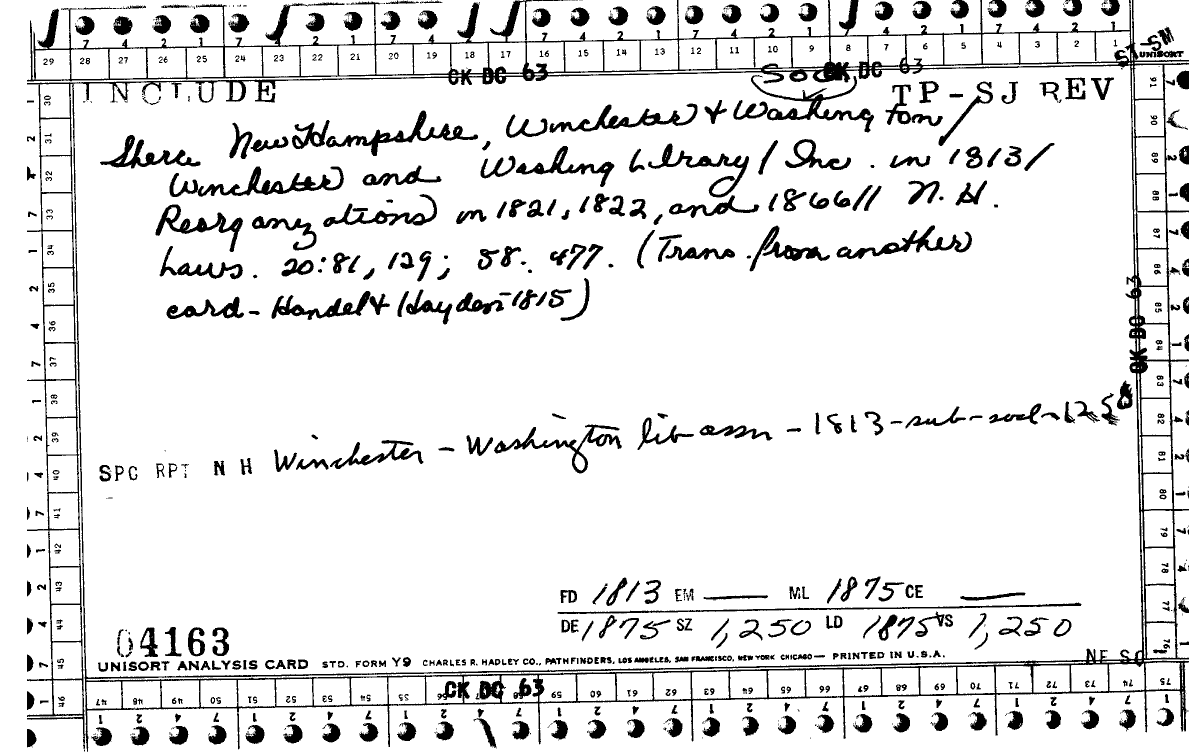 7 4 2 1 7 2 1 7 4 1 7 4 2 1 7 4 2 1 7 4 2 1 7 4 2 1
29 28 27 26 25 24 23 22 21 20 19 18 17 16 15 14 13 12 11 10 9 8 7 6 5 4 3 2 1
SJ-SM
UNISORT
CK DC 63
Soc
CK DC 63
INCLUDE
TP-SJ REV
Shera New Hampshire, Winchester & Washington /
Winchester and Washing Library / Inc. in 1813/
Reorganizations in 1821, 1822, and 1866// N. H.
Laws. 20:81, 129; 58. 477. (Trans. from another
card - Handel & Hayden 1815)
CK DC 63
SPC RPT N H Winchester - Washington lib assn - 1813 - sub - socl - 1250
FD 1813 EM —— ML 1875 CE ——
DE 1875 SZ 1,250 LD 1875 VS 1,250
04163
UNISORT ANALYSIS CARD STD. FORM Y9 CHARLES R. HADLEY CO., PATHFINDERS, LOS ANGELES, SAN FRANCISCO, NEW YORK CHICAGO — PRINTED IN U.S.A.
NF SO
CK DC 63
30 31 32 33 34 35 36 37 38 39 40 41 42 43 44 45 46
47 48 49 50 51 52 53 54 55 56 57 58 59 60 61 62 63 64 65 66 67 68 69 70 71 72 73 74 75
76 77 78 79 80 81 82 83 84 85 86 87 88 89 90 91